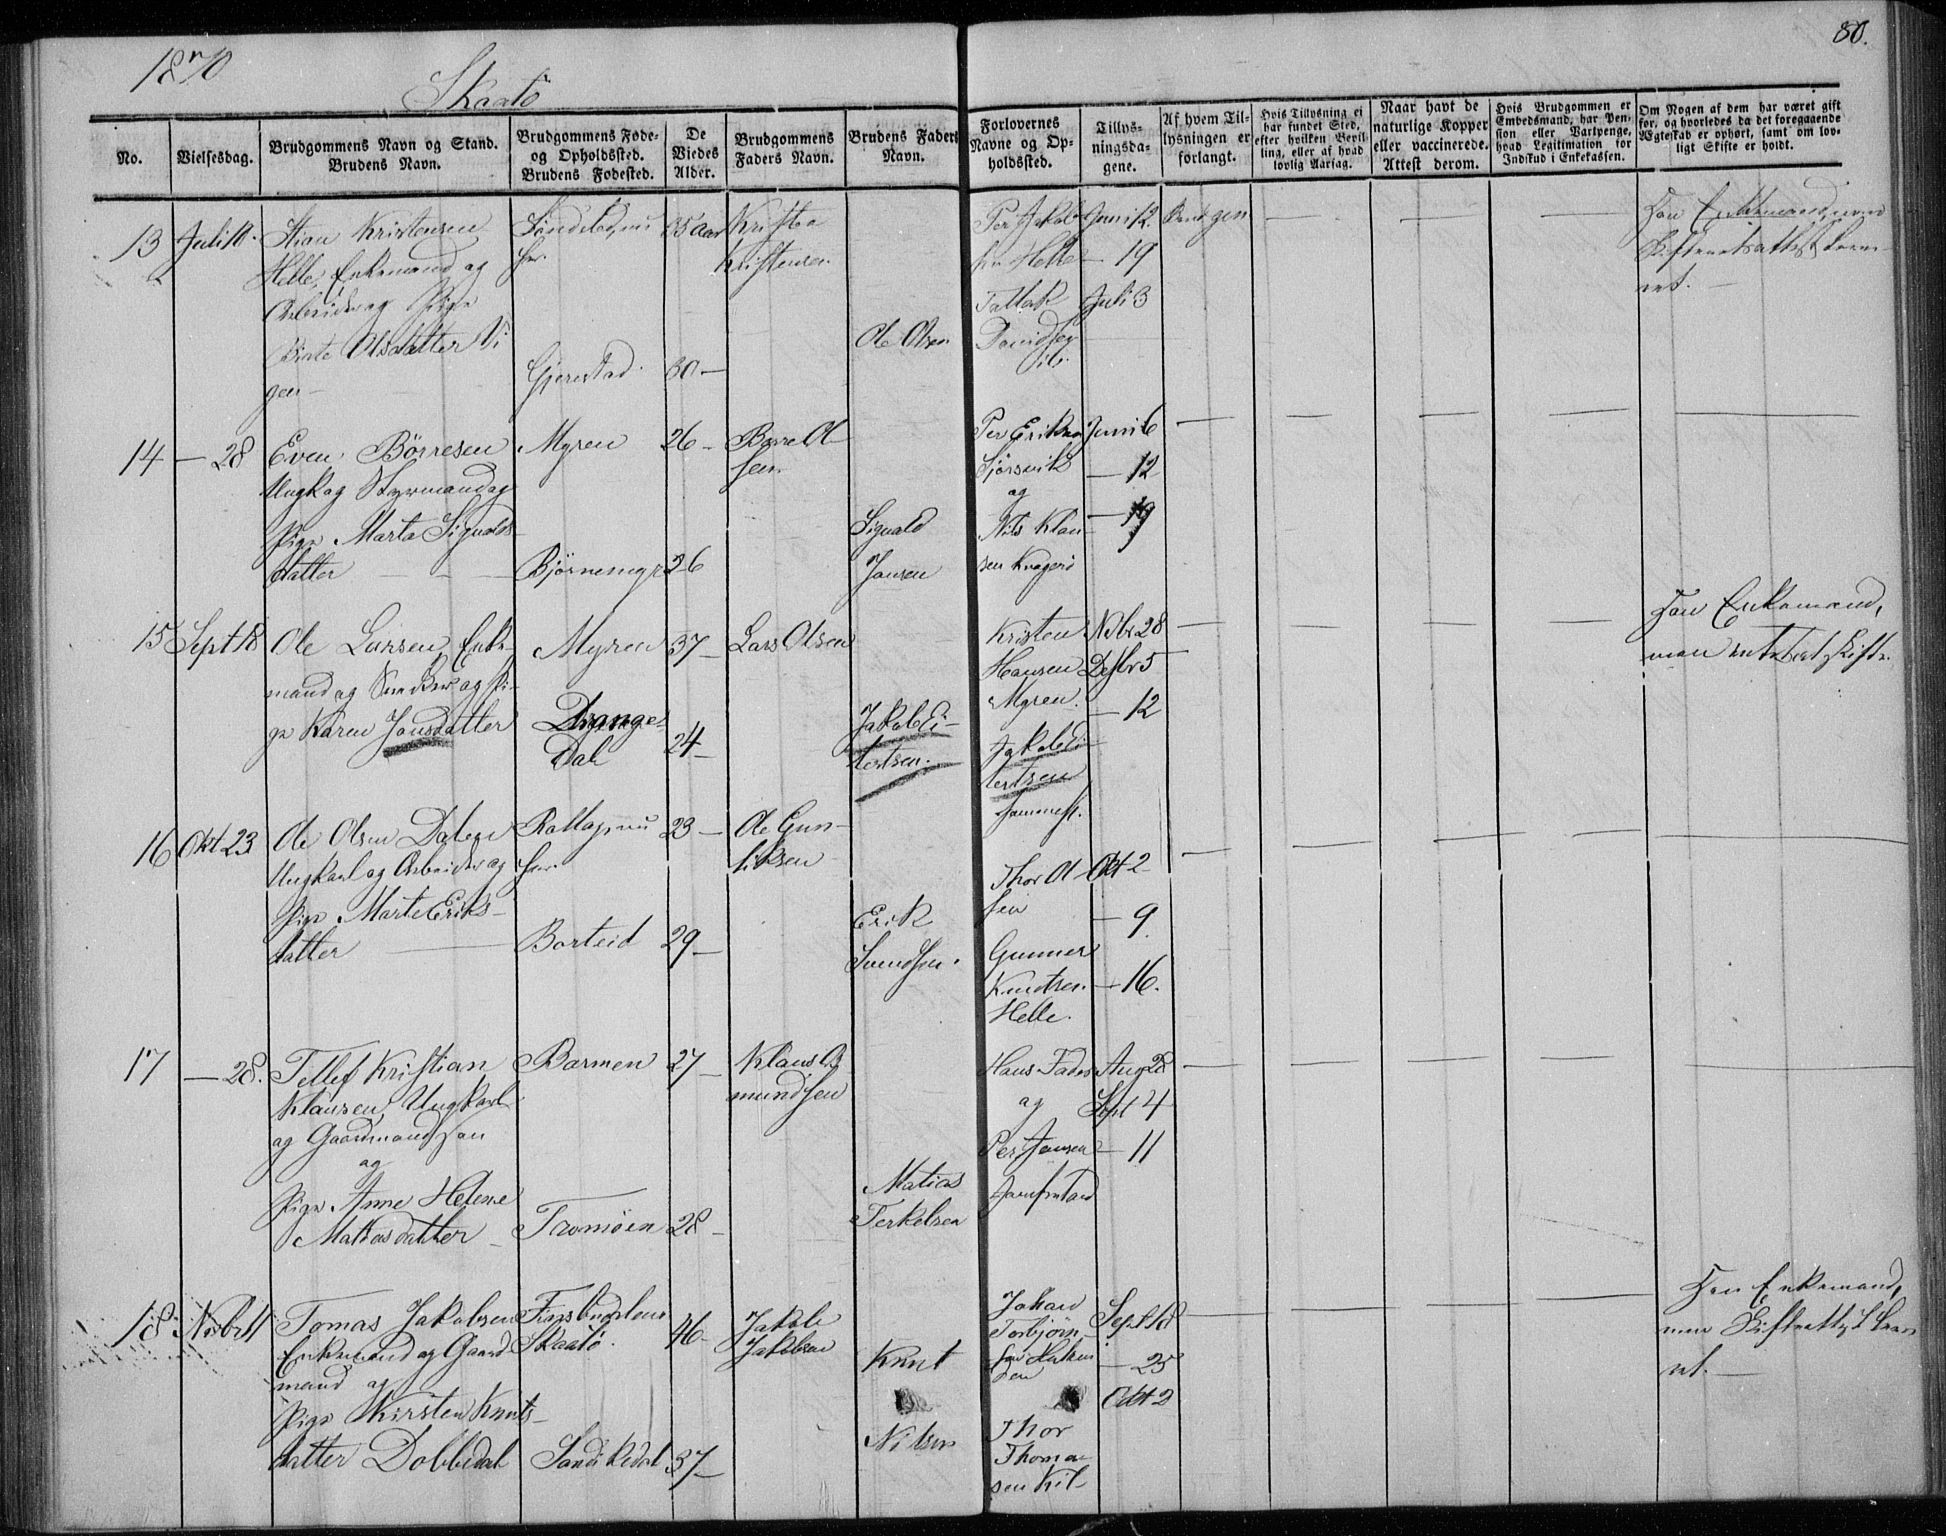 1870
80.
Skaatö
No.
Vielsesdag.
Brudgommens Navn og Stand.
Brudens Navn.
Brudgommens Føde-
og Opholdssted.
Brudens Fødested.
De
Viedes
Alder.
Brudgommens
Faders Navn.
Brudens Faders
Navn.
Forlovernes
Navne og Op-
holdssted.
Tillys-
ningsda-
gene.
Af hvem Til-
lysningen er
forlangt.
Hvis Tillysning ei
har fundet Sted,
efter hvilken Bevil-
ling, eller af hvad
lovlig Aarsag.
Naar havt de
naturlige Kopper
eller vaccinerede.
Attest derom.
Hvis Brudgommen er
Embedsmand, har Pen-
sion eller Vartpenge,
hvad Legitimation for
Indskud i Enkekassen.
Om Nogen af dem har været gift
før, og hvorledes da det foregaaende
Ægteskab er ophørt, samt om lov-
ligt Skifte er holdt.
13 Juli 10.
Stian Kristensen
Helle, Enkemand og
Arbeider og Pige
Olsdatter Vi
gen
Søndeled, nu
her.
Gjerestad.
35 Aar
30 —
Kristen
Kristensen
Ole Olsen
Per Jakob-
sen Helle
Tallak
Davidsen
ib.
Juni 12.
— 19
Juli 3
Han Enkemand,
14 — 28
Even Börresen
Ungk og Styrmand og
Pige Marta Sigvalds-
datter — — —
Myren
Björnemyr
26 —
26
Börre Ol-
sen
Sigvald
Jansen
Per Eriksen
ag
Nils Klau-
sen Kragerö
Juni 6
— 12
— 19
15 Sept 18
Ole Larsen, Enke-
mand og Snedker og Pi-
ge Karen Jansdatter
Myren
Drange-
Dal
37 —
24 —
Lars Olsen
Jakob Ei-
lertsen.
Kristen
Hansen
Myren.
Jakob Ei-
lertsen
sammest.
Nvbr 28
Desbr 5
— 12
Han Enkemand,
men intet at skifte.
16 Okt 23
Ole Olsen Dalen
Ungkarl og Arbeider og
Pige Marte Eriks-
datter
Rollag, nu
her.
Borteid
23 —
29 —
Ole Gun-
liksen
Erik
Svendsen.
Thor Ol-
sen
Gunner
Knudtsen
Helle.
Okt 2
— 9.
— 16.
17 — 28.
Tellef Kristian
Klausen, Ungkarl
og Gaardmandssøn
ag
Pige Anne Helene
Matiasdatter
Barmen
27 —
28 —
Klaus A-
mundsen
Matias
Terkelsen
Hans
ag
Per Jansen
Aug 28
Sept 4
— 11
18 Novbr 11
Tomas Jakobsen
Enkemand og Gaard-
mand og
Pige Kirsten Knuts-
datter Dobbedal
Skaatö.
Sandökedal
46 —
37 —
Jakob
Jakobsen
Knut
Nilsen
Johan
Torbjörn-
sen
Thor
Thoma-
sen Kil-
Sept 18
— 25
Okt 2
Han Enkemand,